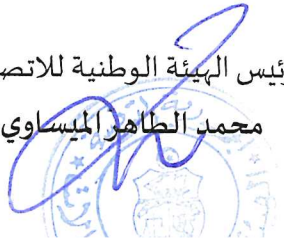 ئيس الهيئة الوطنية للاتص
محمد الطاهر الميساوي